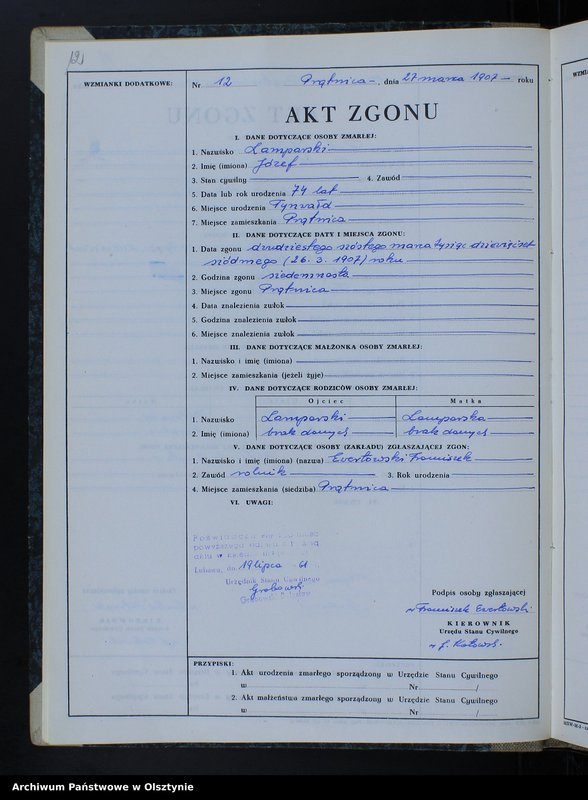 12
WZMIANKI DODATKOWE:
Nr 12 Prątnica -, dnia 27 marca 1907 — roku
AKT ZGONU
I. DANE DOTYCZĄCE OSOBY ZMARŁEJ:
1. Nazwisko Lamparski
2. Imię (imiona) Józef
3. Stan cywilny 4. Zawód
5. Data lub rok urodzenia 74 lat
6. Miejsce urodzenia Tynwałd
7. Miejsce zamieszkania Prątnica
II. DANE DOTYCZĄCE DATY I MIEJSCA ZGONU:
1. Data zgonu dwudziestego szóstego marca tysiąc dziewięćset
siódmego (26. 3. 1907) roku
2. Godzina zgonu siedemnasta
3. Miejsce zgonu Prątnica
4. Data znalezienia zwłok
5. Godzina znalezienia zwłok
6. Miejsce znalezienia zwłok
III. DANE DOTYCZĄCE MAŁŻONKA OSOBY ZMARŁEJ:
1. Nazwisko i imię (imiona)
2. Miejsce zamieszkania (jeżeli żyje)
IV. DANE DOTYCZĄCE RODZICÓW OSOBY ZMARŁEJ:
Ojciec Matka
1. Nazwisko Lamparski Lamparska
2. Imię (imiona) brak danych brak danych
V. DANE DOTYCZĄCE OSOBY (ZAKŁADU) ZGŁASZAJĄCEJ ZGON:
1. Nazwisko i imię (imiona) (nazwa) Ewertowski Franciszek
2. Zawód rolnik 3. Rok urodzenia
4. Miejsce zamieszkania (siedziba) Prątnica
VI. UWAGI:
Poświadcza
powyższego
Lubawa, dn. 19 lipca 61
Urzędnik Stanu Cywilnego
Podpis osoby zgłaszającej
Franciszek Ewertowski
KIEROWNIK
Urzędu Stanu Cywilnego
PRZYPISKI:
1. Akt urodzenia zmarłego sporządzony w Urzędzie Stanu Cywilnego
w Nr /
2. Akt małżeństwa zmarłego sporządzony w Urzędzie Stanu Cywilnego
w Nr /
Archiwum Państwowe w Olsztynie